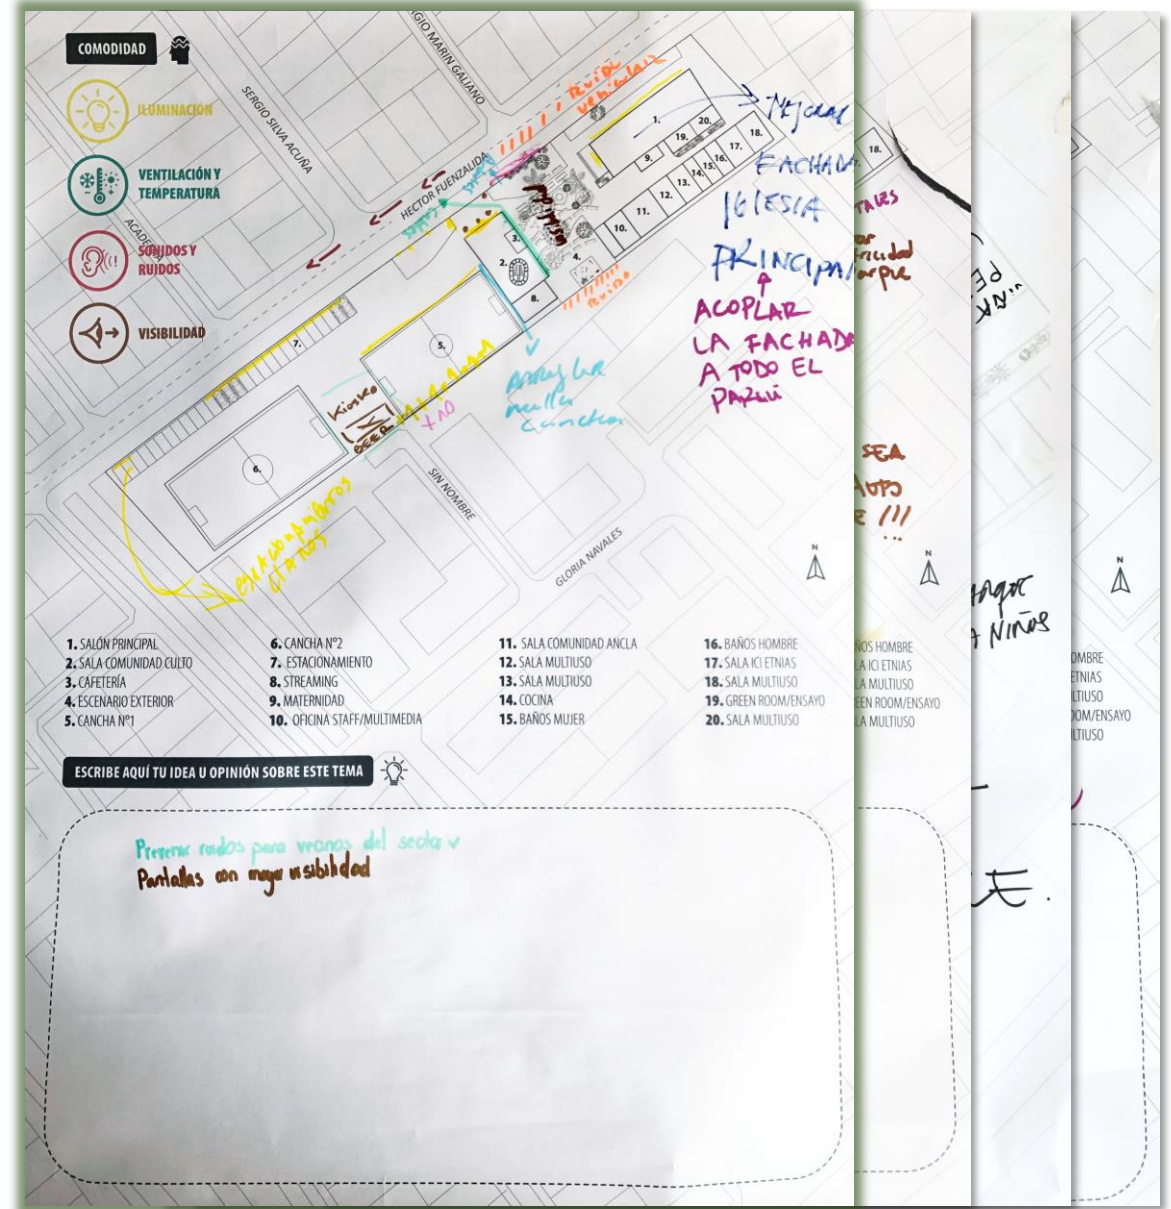 COMODIDAD
ILUMINACIÓN
VENTILACIÓN Y
TEMPERATURA
SONIDOS Y
RUIDOS
VISIBILIDAD
SERGIO SILVA ACUÑA
GIO MARIN GALIANO
HECTOR FUENZALIDA
ACADEMIA
SIN NOMBRE
GLORIA NAVALES
RUIDO
VEHICULAR
MEJORAR
FACHADA
IGLESIA
PRINCIPAL
ACOPLAR
LA FACHADA
A TODO EL
RUIDO
ARREGLAR
malla
cancha
Kiosko
BEER
ESTACIONAMIENTOS
1.
2.
3.
4.
5.
6.
7.
8.
9.
10.
11.
12.
13.
14.
15.
16.
17.
18.
19.
20.
N
1. SALÓN PRINCIPAL
2. SALA COMUNIDAD CULTO
3. CAFETERÍA
4. ESCENARIO EXTERIOR
5. CANCHA Nº1
6. CANCHA Nº2
7. ESTACIONAMIENTO
8. STREAMING
9. MATERNIDAD
10. OFICINA STAFF/MULTIMEDIA
11. SALA COMUNIDAD ANCLA
12. SALA MULTIUSO
13. SALA MULTIUSO
14. COCINA
15. BAÑOS MUJER
16. BAÑOS HOMBRE
17. SALA ICI ETNIAS
18. SALA MULTIUSO
19. GREEN ROOM/ENSAYO
20. SALA MULTIUSO
ESCRIBE AQUÍ TU IDEA U OPINIÓN SOBRE ESTE TEMA
Prevenir ruidos para vecinos del sector
Pantallas con mayor visibilidad
18.
TALES
SEA
!!!
N
ÑOS HOMBRE
LA ICI ETNIAS
LA MULTIUSO
EEN ROOM/ENSAYO
LA MULTIUSO
NIÑOS
E.
N
OMBRE
ETNIAS
LTIUSO
OOM/ENSAYO
LTIUSO